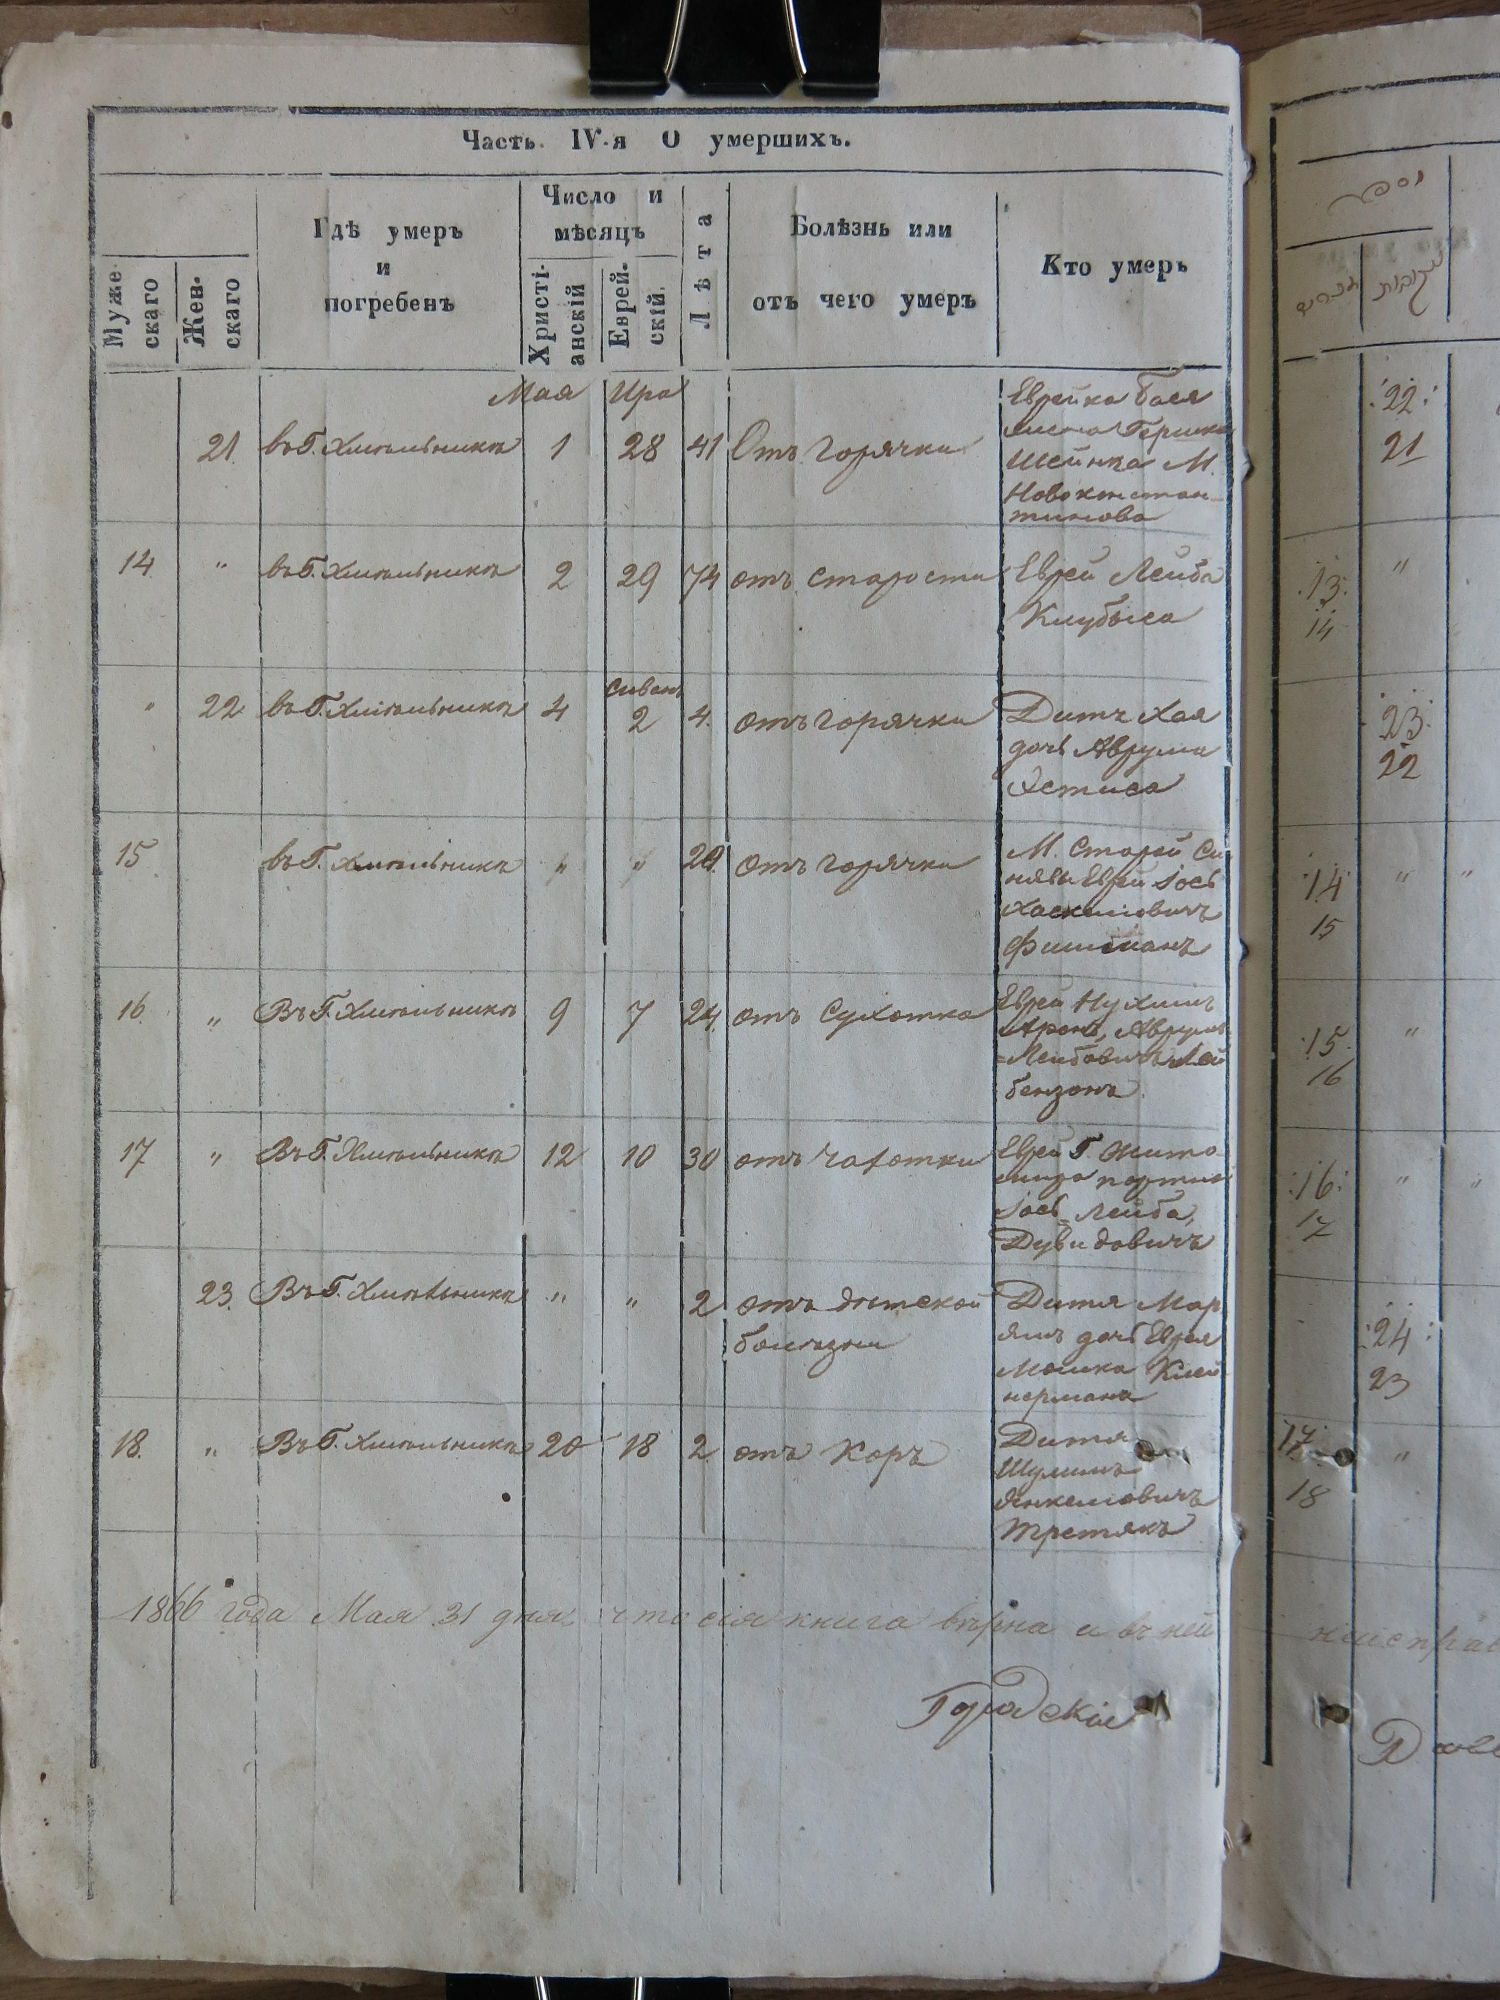 Часть IV-я О умершихъ.
Муже скаго
Жен- скаго
Гдѣ умеръ
и
погребенъ
Число и
мѣсяцъ
Христі- анскій
Еврей- скій
Лѣта
Болѣзнь или
отъ чего умеръ
Кто умеръ
Мая
21 въ Г. Хмѣльникѣ 1 28 41 Отъ горячки
Еврейка Бася
Гершка
М.
Новоконстан-
тинова
14 " въ Г. Хмѣльникѣ 2 29 74 отъ старости
Еврей Лейба
" 22 въ Г. Хмѣльникѣ 4 Сиванъ 2 4 отъ горячки
Дитя Хая
дочь Аврума
15 въ Г. Хмѣльникѣ " " 29 отъ горячки
М. Старой Си
нявы Еврей Іось
Хаскелевичъ
Фишманъ
16 " Въ Г. Хмѣльникѣ 9 7 24 отъ Сухотка
Еврей Нухимъ
Аронъ, Аврумъ
Лейбовичъ Лей
бензонъ
17 " Въ Г. Хмѣльникѣ 12 10 30 отъ чахотки
Еврей Г. Жито
мира портной
Іось Лейба,
Дувидовичъ
23 Въ Г. Хмѣльникѣ " " 2 отъ дѣтской
болѣзни
Дитя Мар
ямъ дочь Еврея
Мошка Клей
нермана
18 " Въ Г. Хмѣльникѣ 20 18 2 отъ Коръ
Дитя
Шулимъ
Янкелевичъ
Третякъ
1866 года Мая 31 дня что сія книга вѣрна и въ ней
Городскіе
מספר
נקבות
:22:
21
:13: "
14
:23:
22
:14: " "
15
:15: "
16
:16: " "
17
:24:
23
:17: "
18